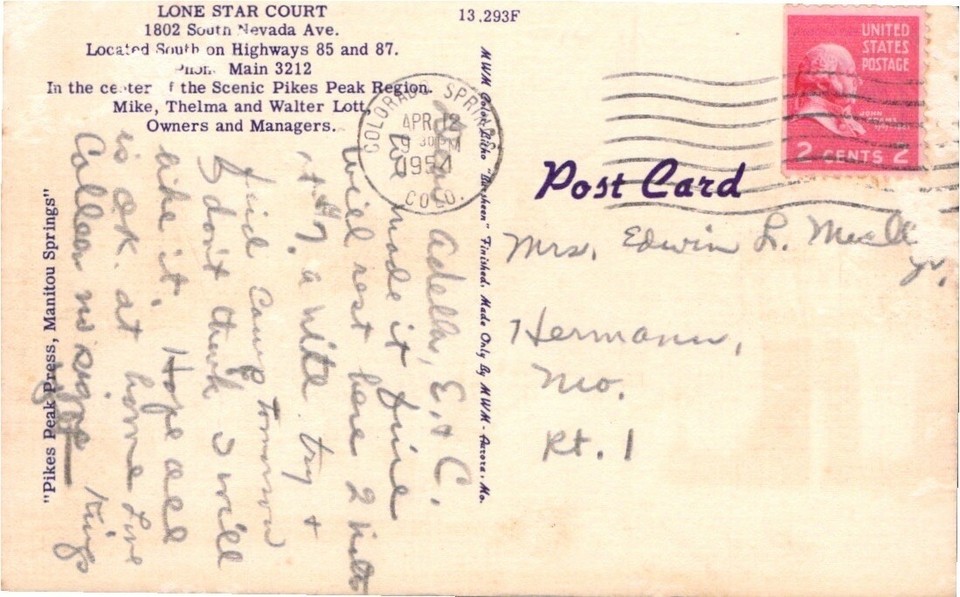 LONE STAR COURT
1802 South Nevada Ave.
Located South on Highways 85 and 87.
Phone Main 3212
In the center of the Scenic Pikes Peak Region.
Mike, Thelma and Walter Lott,
Owners and Managers.
13,293F
UNITED
STATES
POSTAGE
JOHN ADAMS
2 CENTS 2
COLORADO SPRINGS
APR 12
9 30 M
1954
COLO.
Post Card
MWM Color-Litho "Finished. Made Only By MWM - Aurora, Mo.
"Pikes Peak Press, Manitou Springs"
Mrs. Edwin L.
Jr.
Hermann,
Mo.
Rt. 1
Adelh, E, + C.
made it fine
will rest here 2 nites
at $7. a nite try +
find Camp tomorrow
I don't think I will
like it. Hope all
is o.k. at home Love